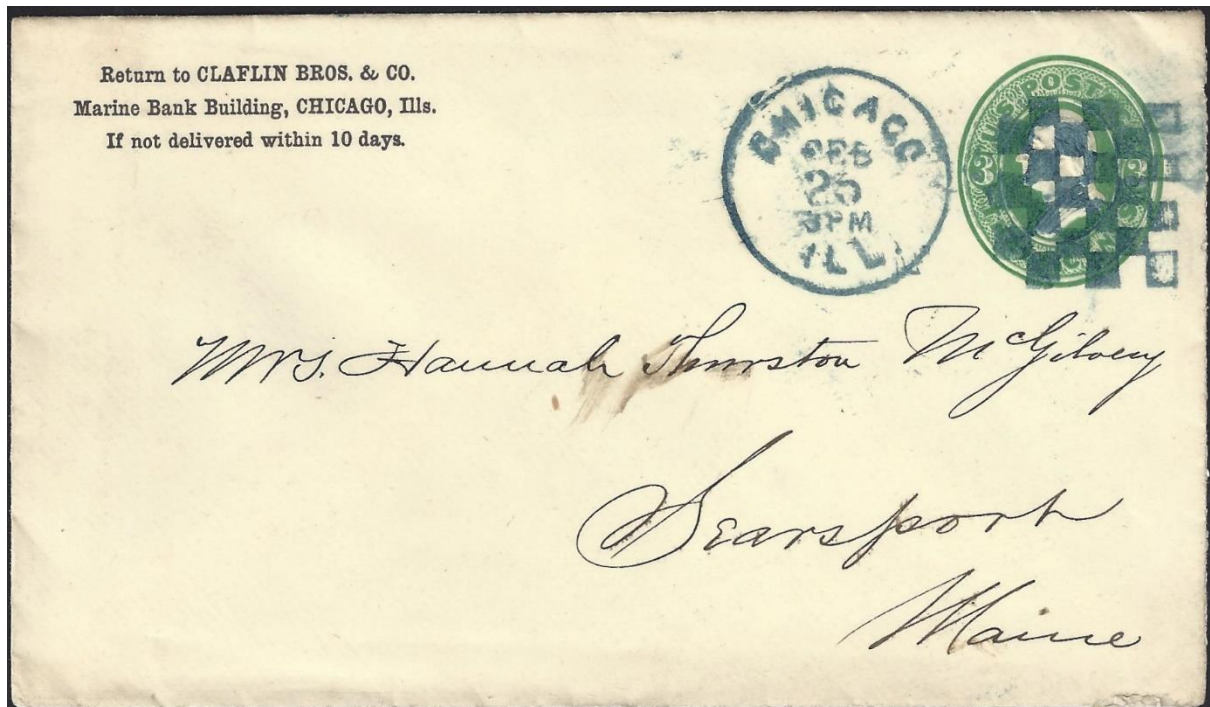 Return to CLAFLIN BROS. & CO.
Marine Bank Building, CHICAGO, Ills.
If not delivered within 10 days.
CHICAGO
FEB
25
PM
ILL
U.S. POSTAGE
3 3
Mrs. Hannah Thurston McGilvery
Searsport
Maine